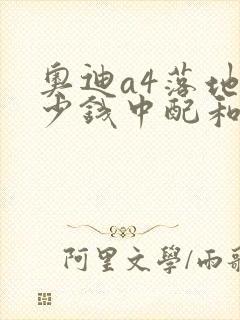 奥迪a4落地
少钱中配和
阿里文學/雨歌